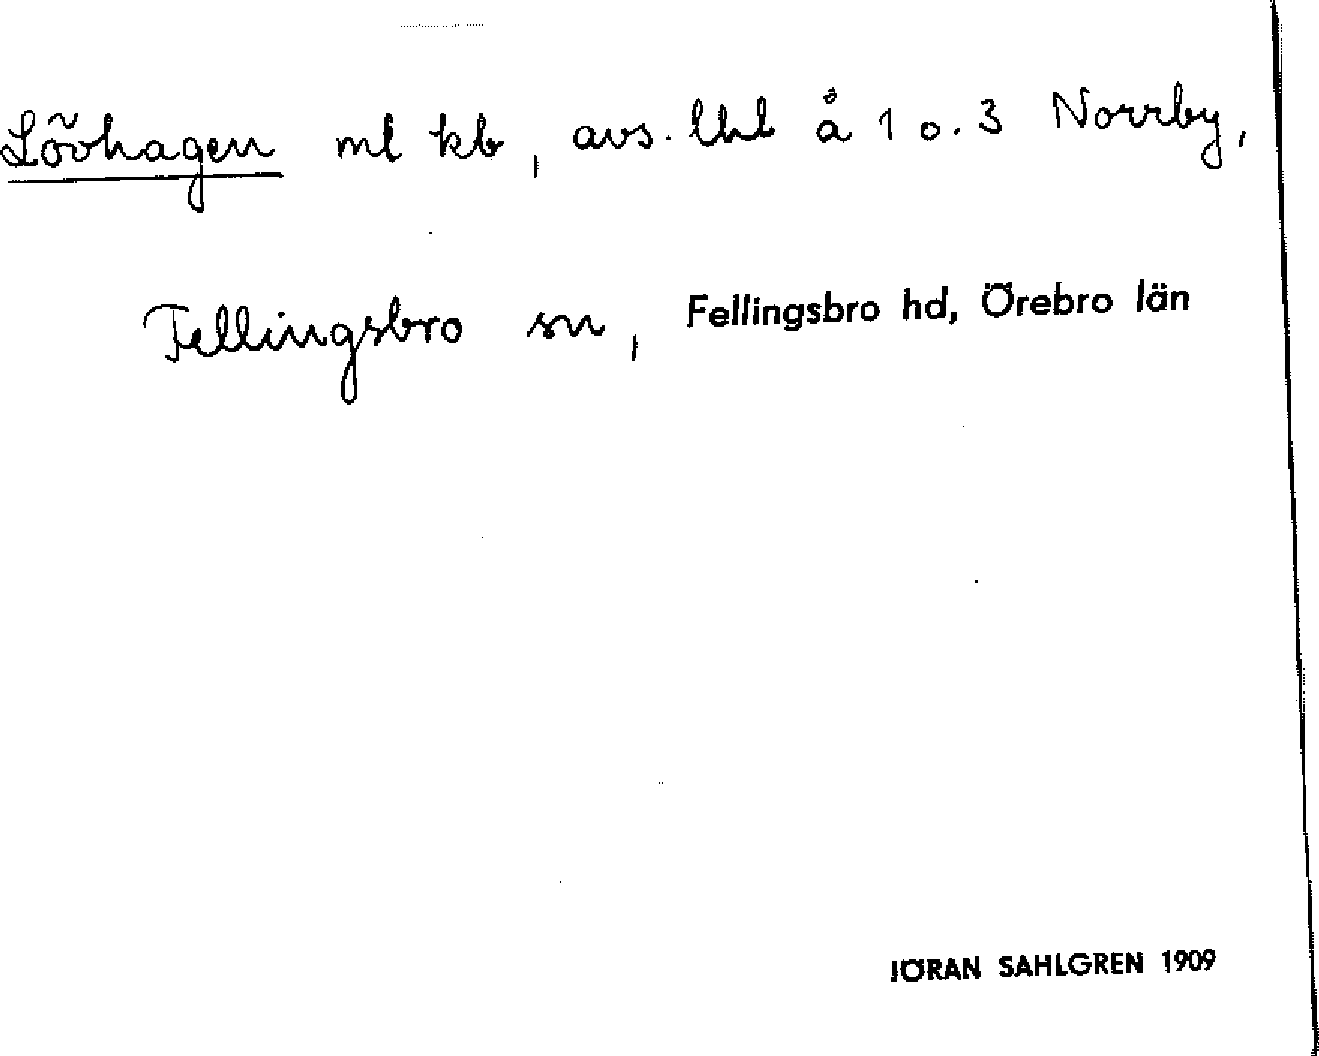 Lövhagen ml kb, avs. lht å 1 o. 3 Norrby,
Fellingsbro sn, Fellingsbro hd, Örebro län
JÖRAN SAHLGREN 1909